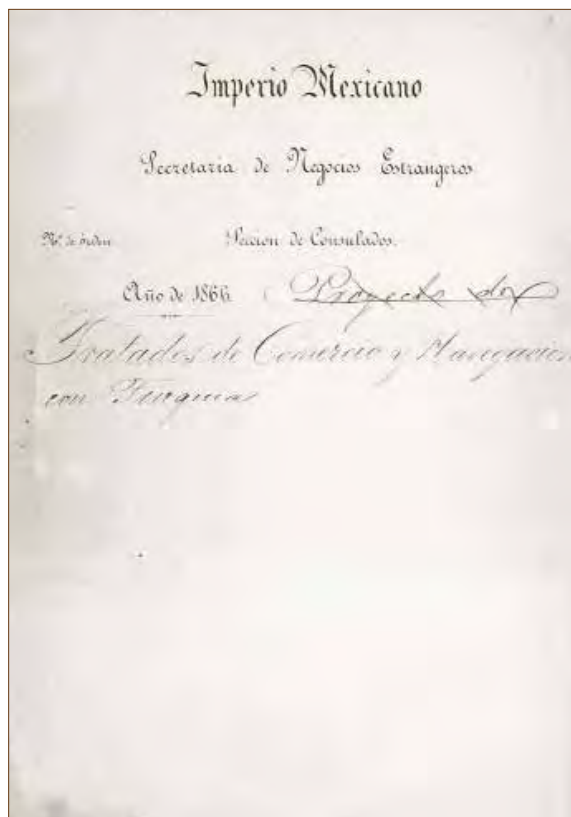 Imperio Mexicano
Secretaria de Negocios Estrangeros
Nº de órden Seccion de Consulados.
Año de 1866. Proyecto de
Tratados de Comercio y Navegacion
con Turquia